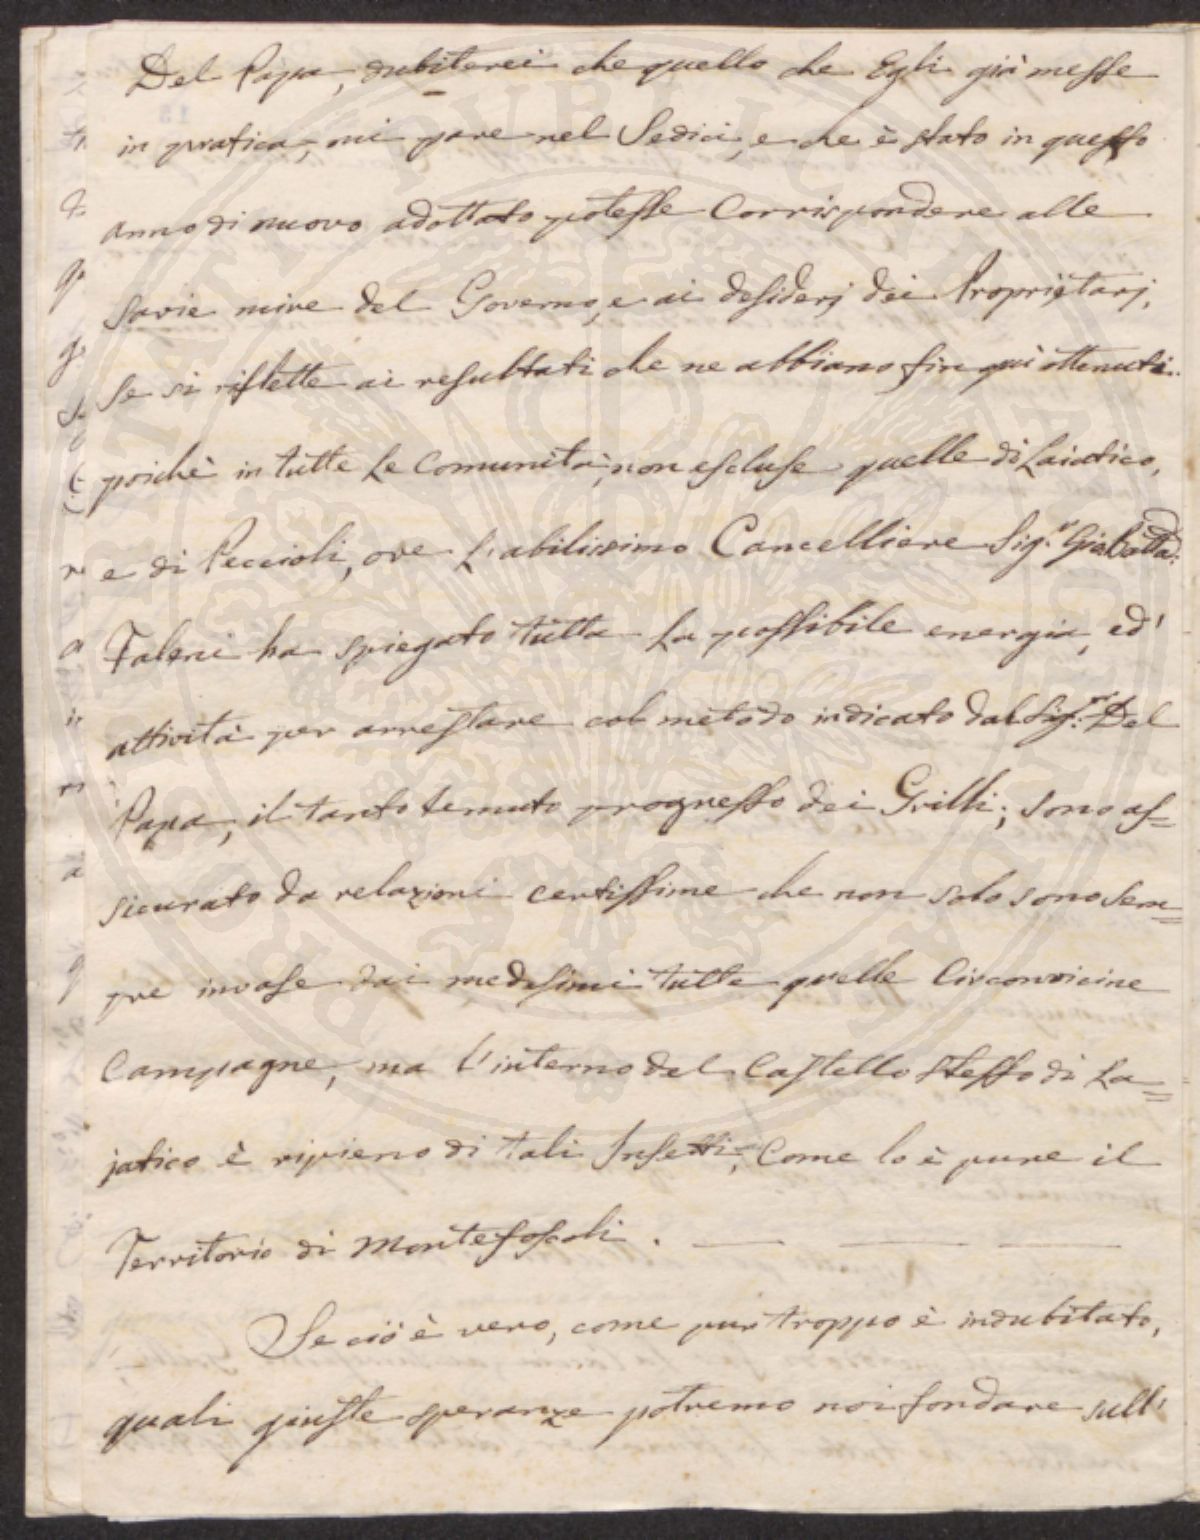 Del Papa, dubiterei che quello che Egli già messe
in pratica, mi pare nel Sedici, e che è stato in questo
anno di nuovo adottato potesse Corrispondere alle
savie mire del Governo, e ai desiderj dei Proprietarj,
se si riflette ai resultati che ne abbiamo fin quì ottenuti..
poichè in tutte le Comunità, non escluse quelle di Laiatico,
e di Peccioli, ove l'abilissimo Cancelliere Sig.r Gio Batta:
Faleni ha spiegato tutta la possibile energia, ed'
attività per arrestare col metodo indicato dal Sig.r Del
Papa, il tanto temuto progresso dei Grilli; sono as=
sicurato da relazioni certissime che non solo sono sem=
pre invase dai medesimi tutte quelle Circonvicine
Campagne, ma l'interno del Castello stesso di La=
jatico è ripieno di tali Insetti, Come lo è pure il
Territorio di Montefoscoli.
Se ciò è vero, come pur troppo è indubitato,
quali giuste speranze potremo noi fondare sull'
PUBLICAE UTILITATI